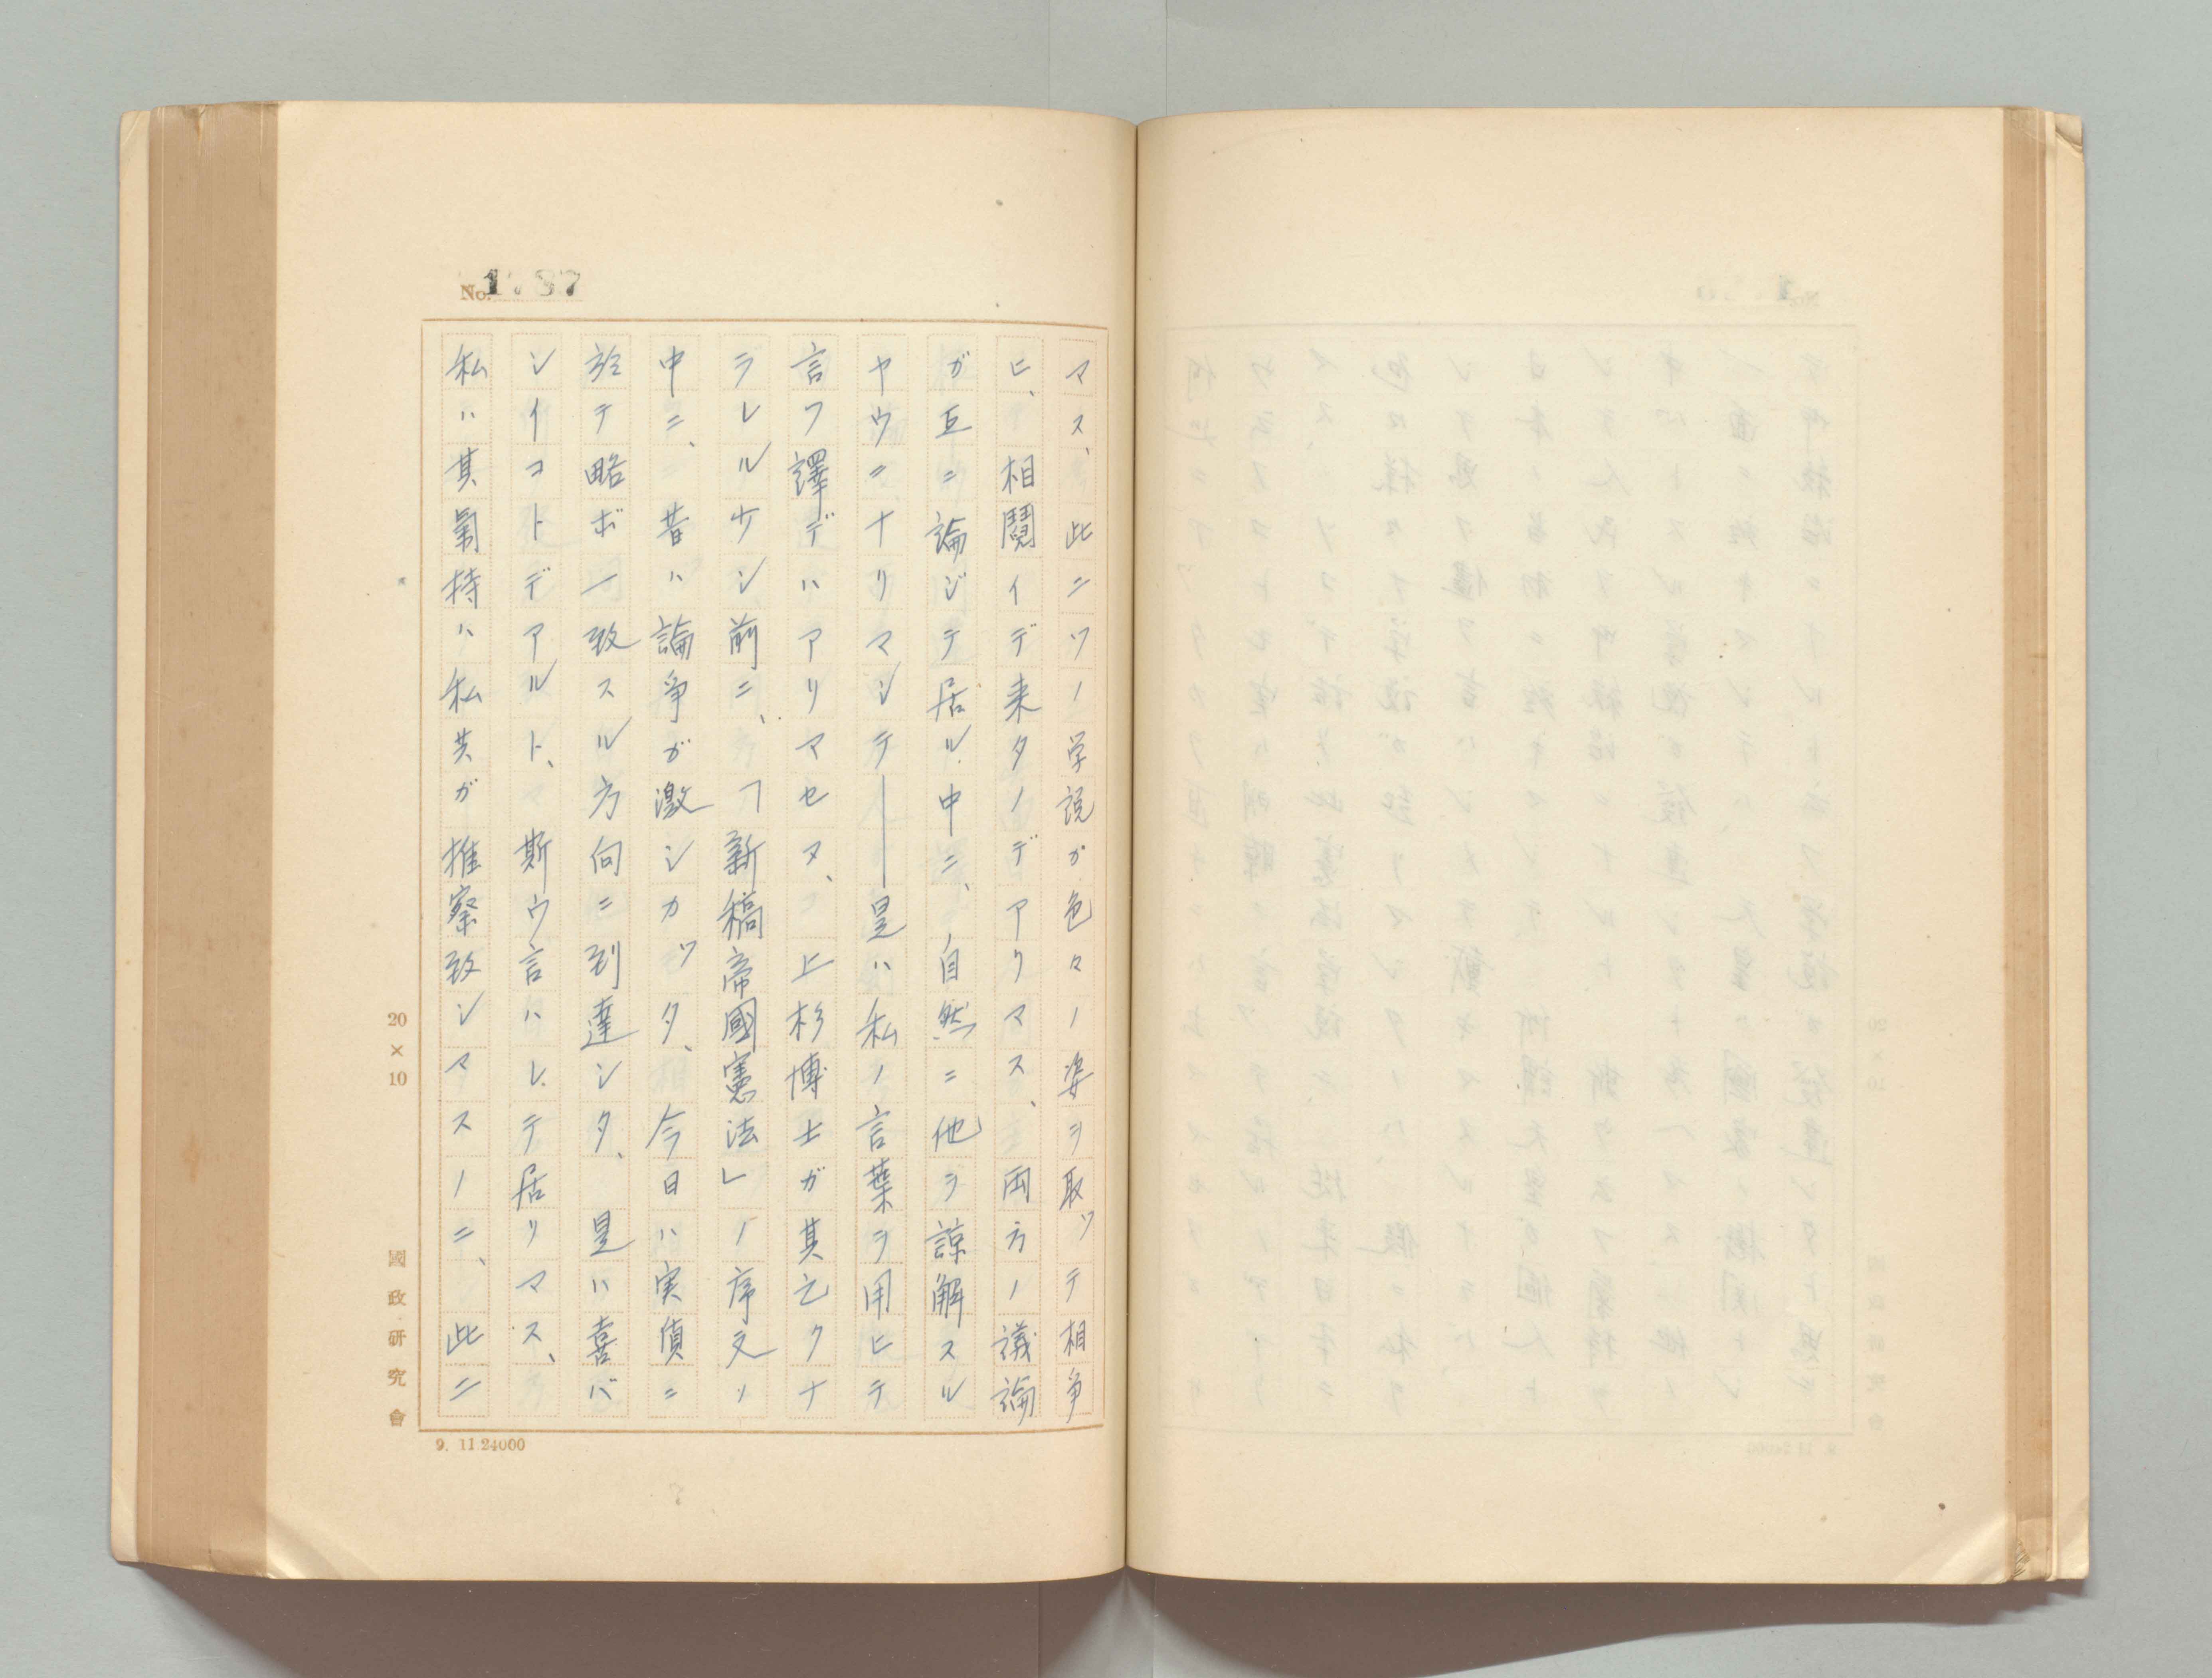 No. 1787
マス、此ニツノ学説ガ色々ノ姿ヲ取ツテ相争
ヒ、相鬩イデ来タノデアリマス、両方ノ議論
ガ互ニ論ジテ居ル中ニ、自然ニ他ヲ諒解スル
ヤウニナリマシテ――是ハ私ノ言葉ヲ用ヒテ
言フ譯デハアリマセヌ、上杉博士ガ其亡クナ
ラレル少シ前ニ、「新稿帝國憲法」ノ序文ノ
中ニ、昔ハ論争ガ激シカツタ、今日ハ実質ニ
於テ略ボ一致スル方向ニ到達シタ、是ハ喜バ
シイコトデアルト、斯ウ言ハレテ居リマス、
私ハ其氣持ハ私共ガ推察致シマスノニ、此ニ
20×10
國政研究會
9. 11 24000